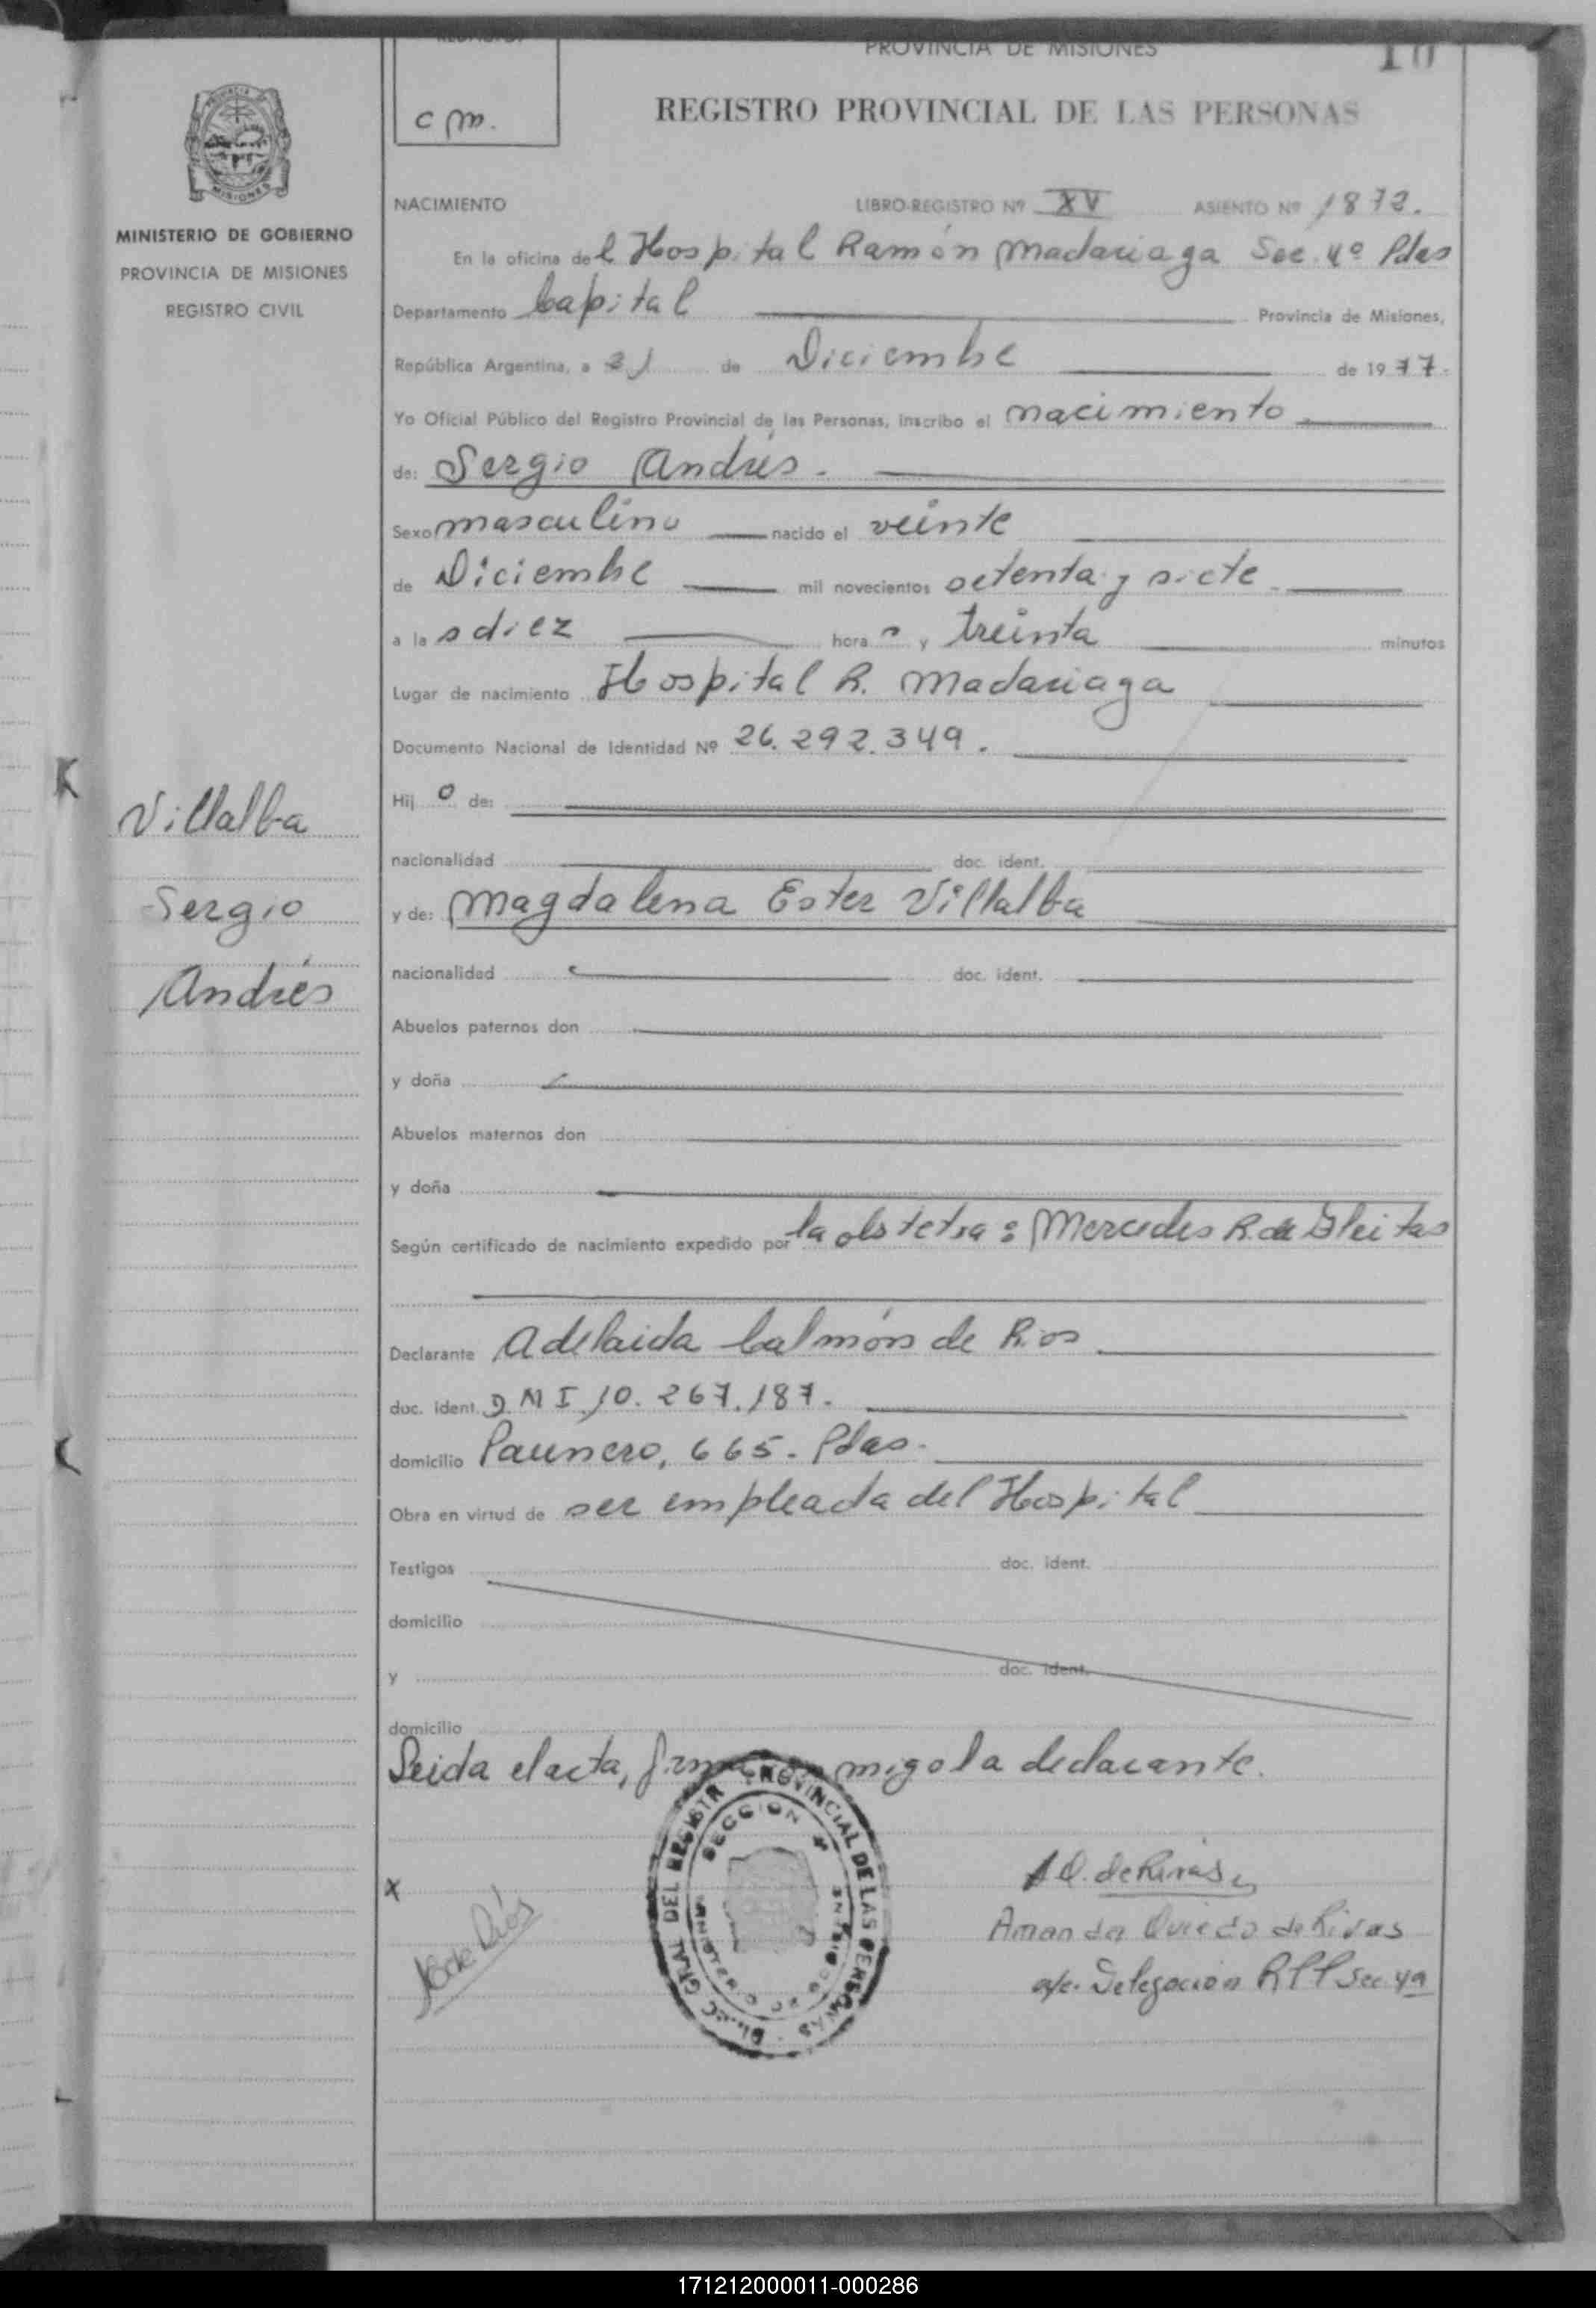 PROVINCIA DE MISIONES
10
REGISTRO PROVINCIAL DE LAS PERSONAS
C M.
PROVINCIA
MISIONES
MINISTERIO DE GOBIERNO
PROVINCIA DE MISIONES
REGISTRO CIVIL
Villalba
Sergio
Andrés
NACIMIENTO LIBRO-REGISTRO Nº XV ASIENTO Nº 1872.
En la oficina del Hospital Ramón Madariaga Sec. 4º Pdas
Departamento Capital Provincia de Misiones,
República Argentina, a 21 de Diciembre de 1977.
Yo Oficial Público del Registro Provincial de las Personas, inscribo el nacimiento
de: Sergio Andrés.
Sexo masculino nacido el veinte
de Diciembre mil novecientos setenta y siete
a las diez horas y treinta minutos
Lugar de nacimiento Hospital R. Madariaga
Documento Nacional de Identidad Nº 26.292.349.
Hijo de:
nacionalidad doc. ident.
y de: Magdalena Ester Villalba
nacionalidad doc. ident.
Abuelos paternos don
y doña
Abuelos maternos don
y doña
Según certificado de nacimiento expedido por la obstetra: Mercedes R. de Gleitas
Declarante Adelaida Calmón de Rios
doc. ident. D N I 10.267.187.
domicilio Paunero, 665. Pdas.
Obra en virtud de ser empleada del Hospital
Testigos doc. ident.
domicilio
y doc. ident.
domicilio
Leida el acta, firma conmigo la declarante.
X
A C de Ríos
DIREC GRAL DEL REGISTR PROVINCIAL DE LAS PERSONAS
SECCION 4
A O. de Rivas
Amanda Oviedo de Rivas
a/c. Delegación RPP Sec. 4a
171212000011-000286